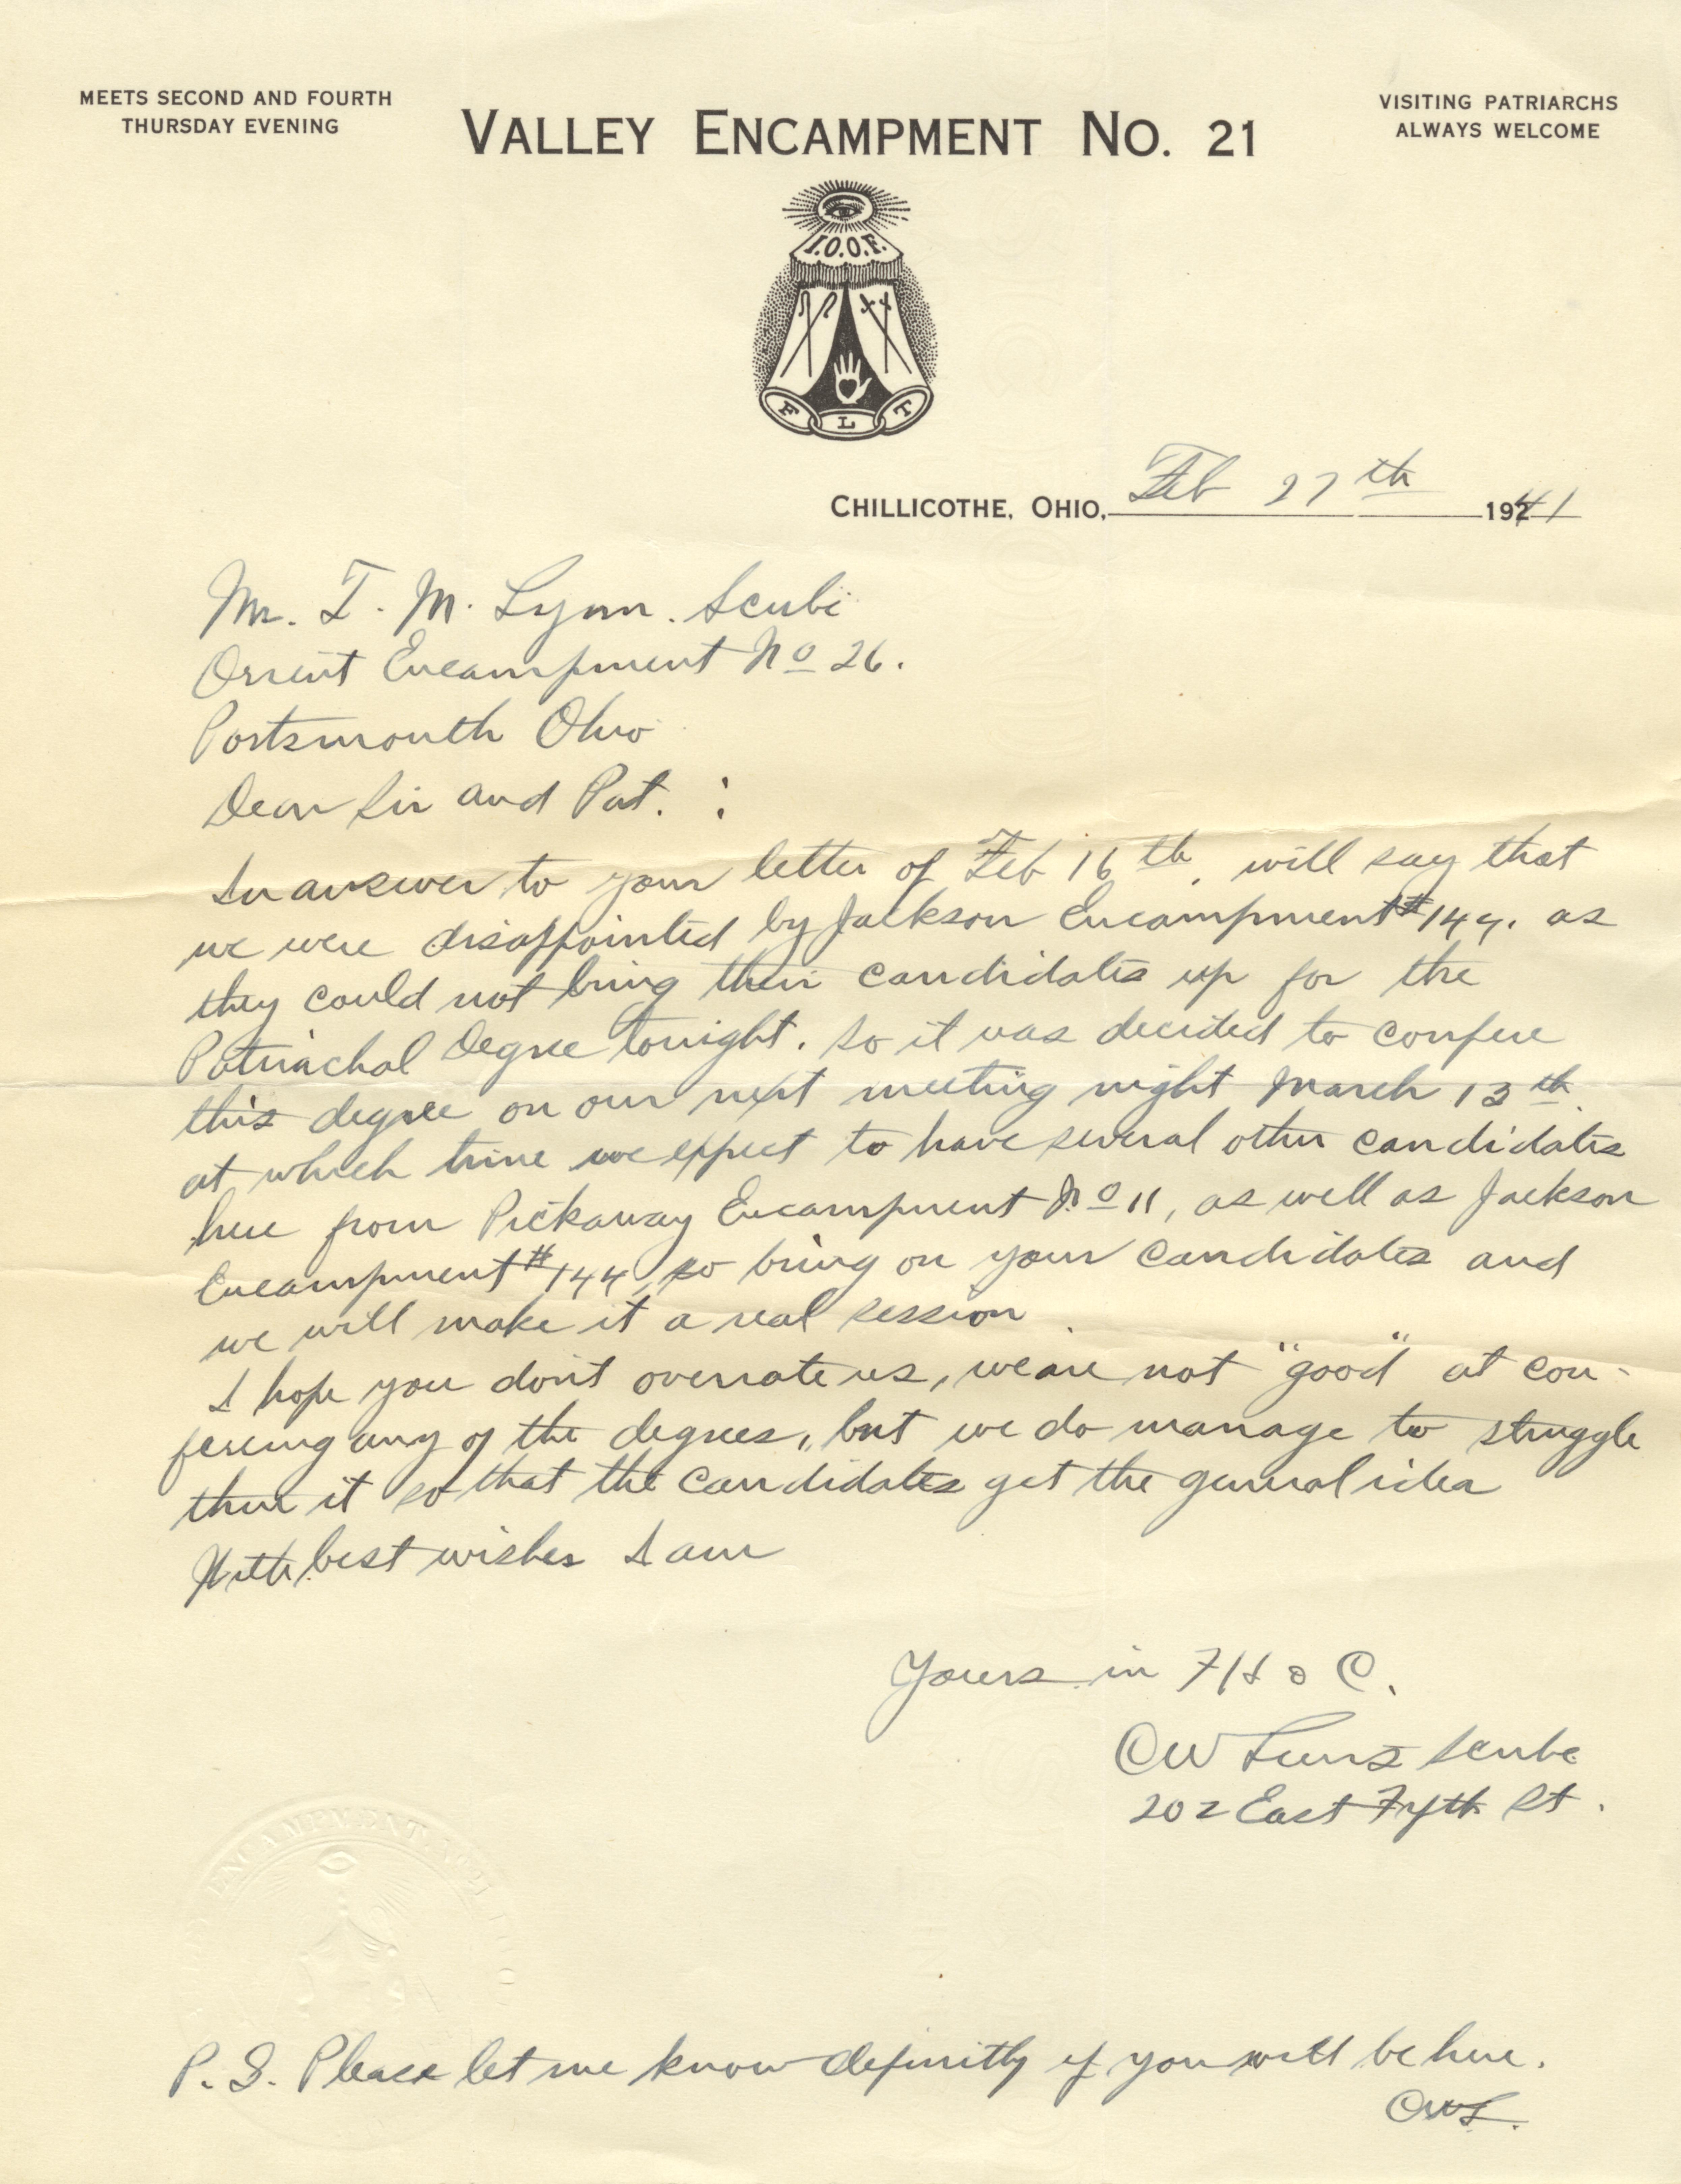 MEETS SECOND AND FOURTH
THURSDAY EVENING
VALLEY ENCAMPMENT NO. 21
VISITING PATRIARCHS
ALWAYS WELCOME
I.O.O.F.
F L T
CHILLICOTHE, OHIO, Feb 27th 1941
Mr. T. M. Lynn. Scribe
Orient Encampment No 26.
Portsmouth Ohio
Dear Sir and Pat. :
In answer to your letter of Feb 16th, will say that
we were disappointed by Jackson Encampment #144. as
they could not bring their candidates up for the
Patriachal Degree tonight. So it was decided to confere
this degree on our next meeting night March 13th.
at which time we expect to have several other candidates
here from Pickaway Encampment No 11, as well as Jackson
Encampment #144, so bring on your candidates and
we will make it a real session.
I hope you don't overrate us, we are not "good" at con-
fereing any of the degrees, but we do manage to struggle
thru it so that the candidates get the general idea
With best wishes I am
Yours in F H & C.
CW Scribe
202 East Fifth St.
ENCAMPMENT
P. S. Please let me know definitly if you will be here.
CWL.